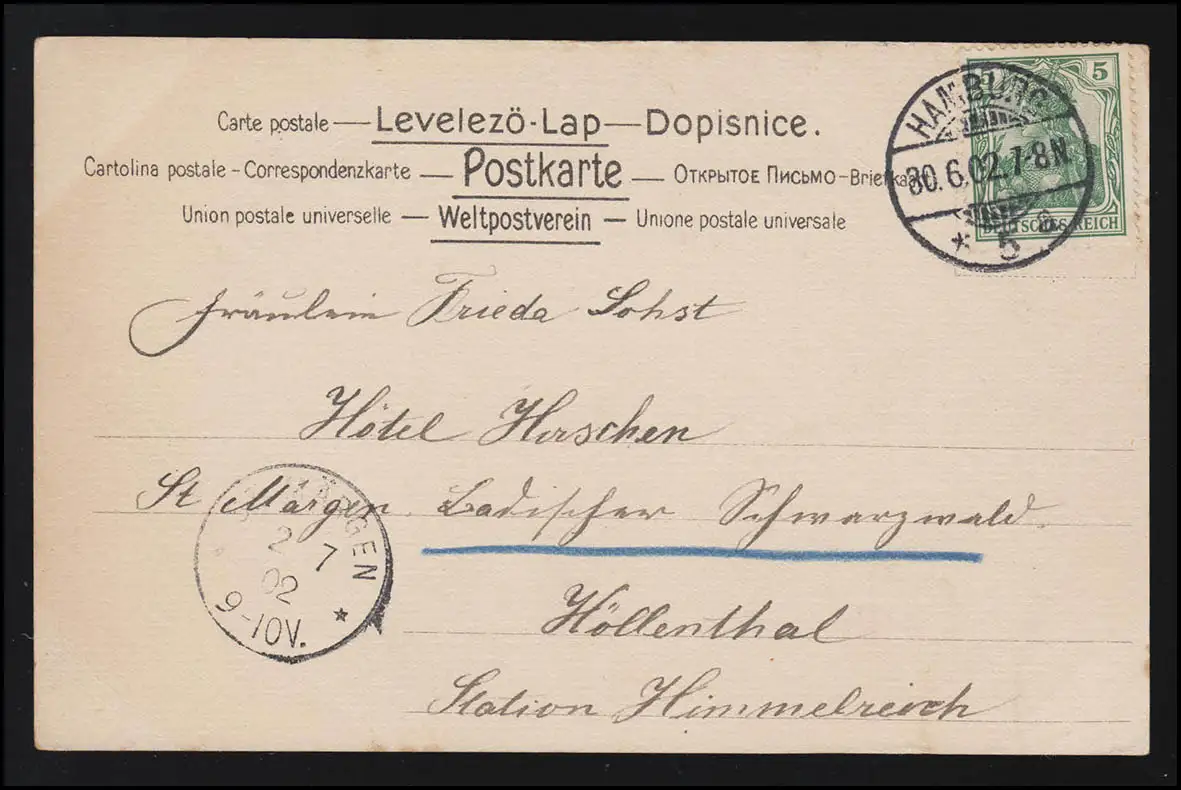 Carte postale — Levelezö-Lap — Dopisnice.
Cartolina postale - Correspondenzkarte — Postkarte — Открытое Письмо - Briefkaart
Union postale universelle — Weltpostverein — Unione postale universale
5
DEUTSCHES REICH
HAMBURG
30.6.02.7-8N
* 5 a
Fräulein Frieda Sohst
Hôtel Hirschen
St Märgen. Badischer Schwarzwald.
Höllenthal
Station Himmelreich
MÄRGEN
2 7
02
9-10V. *